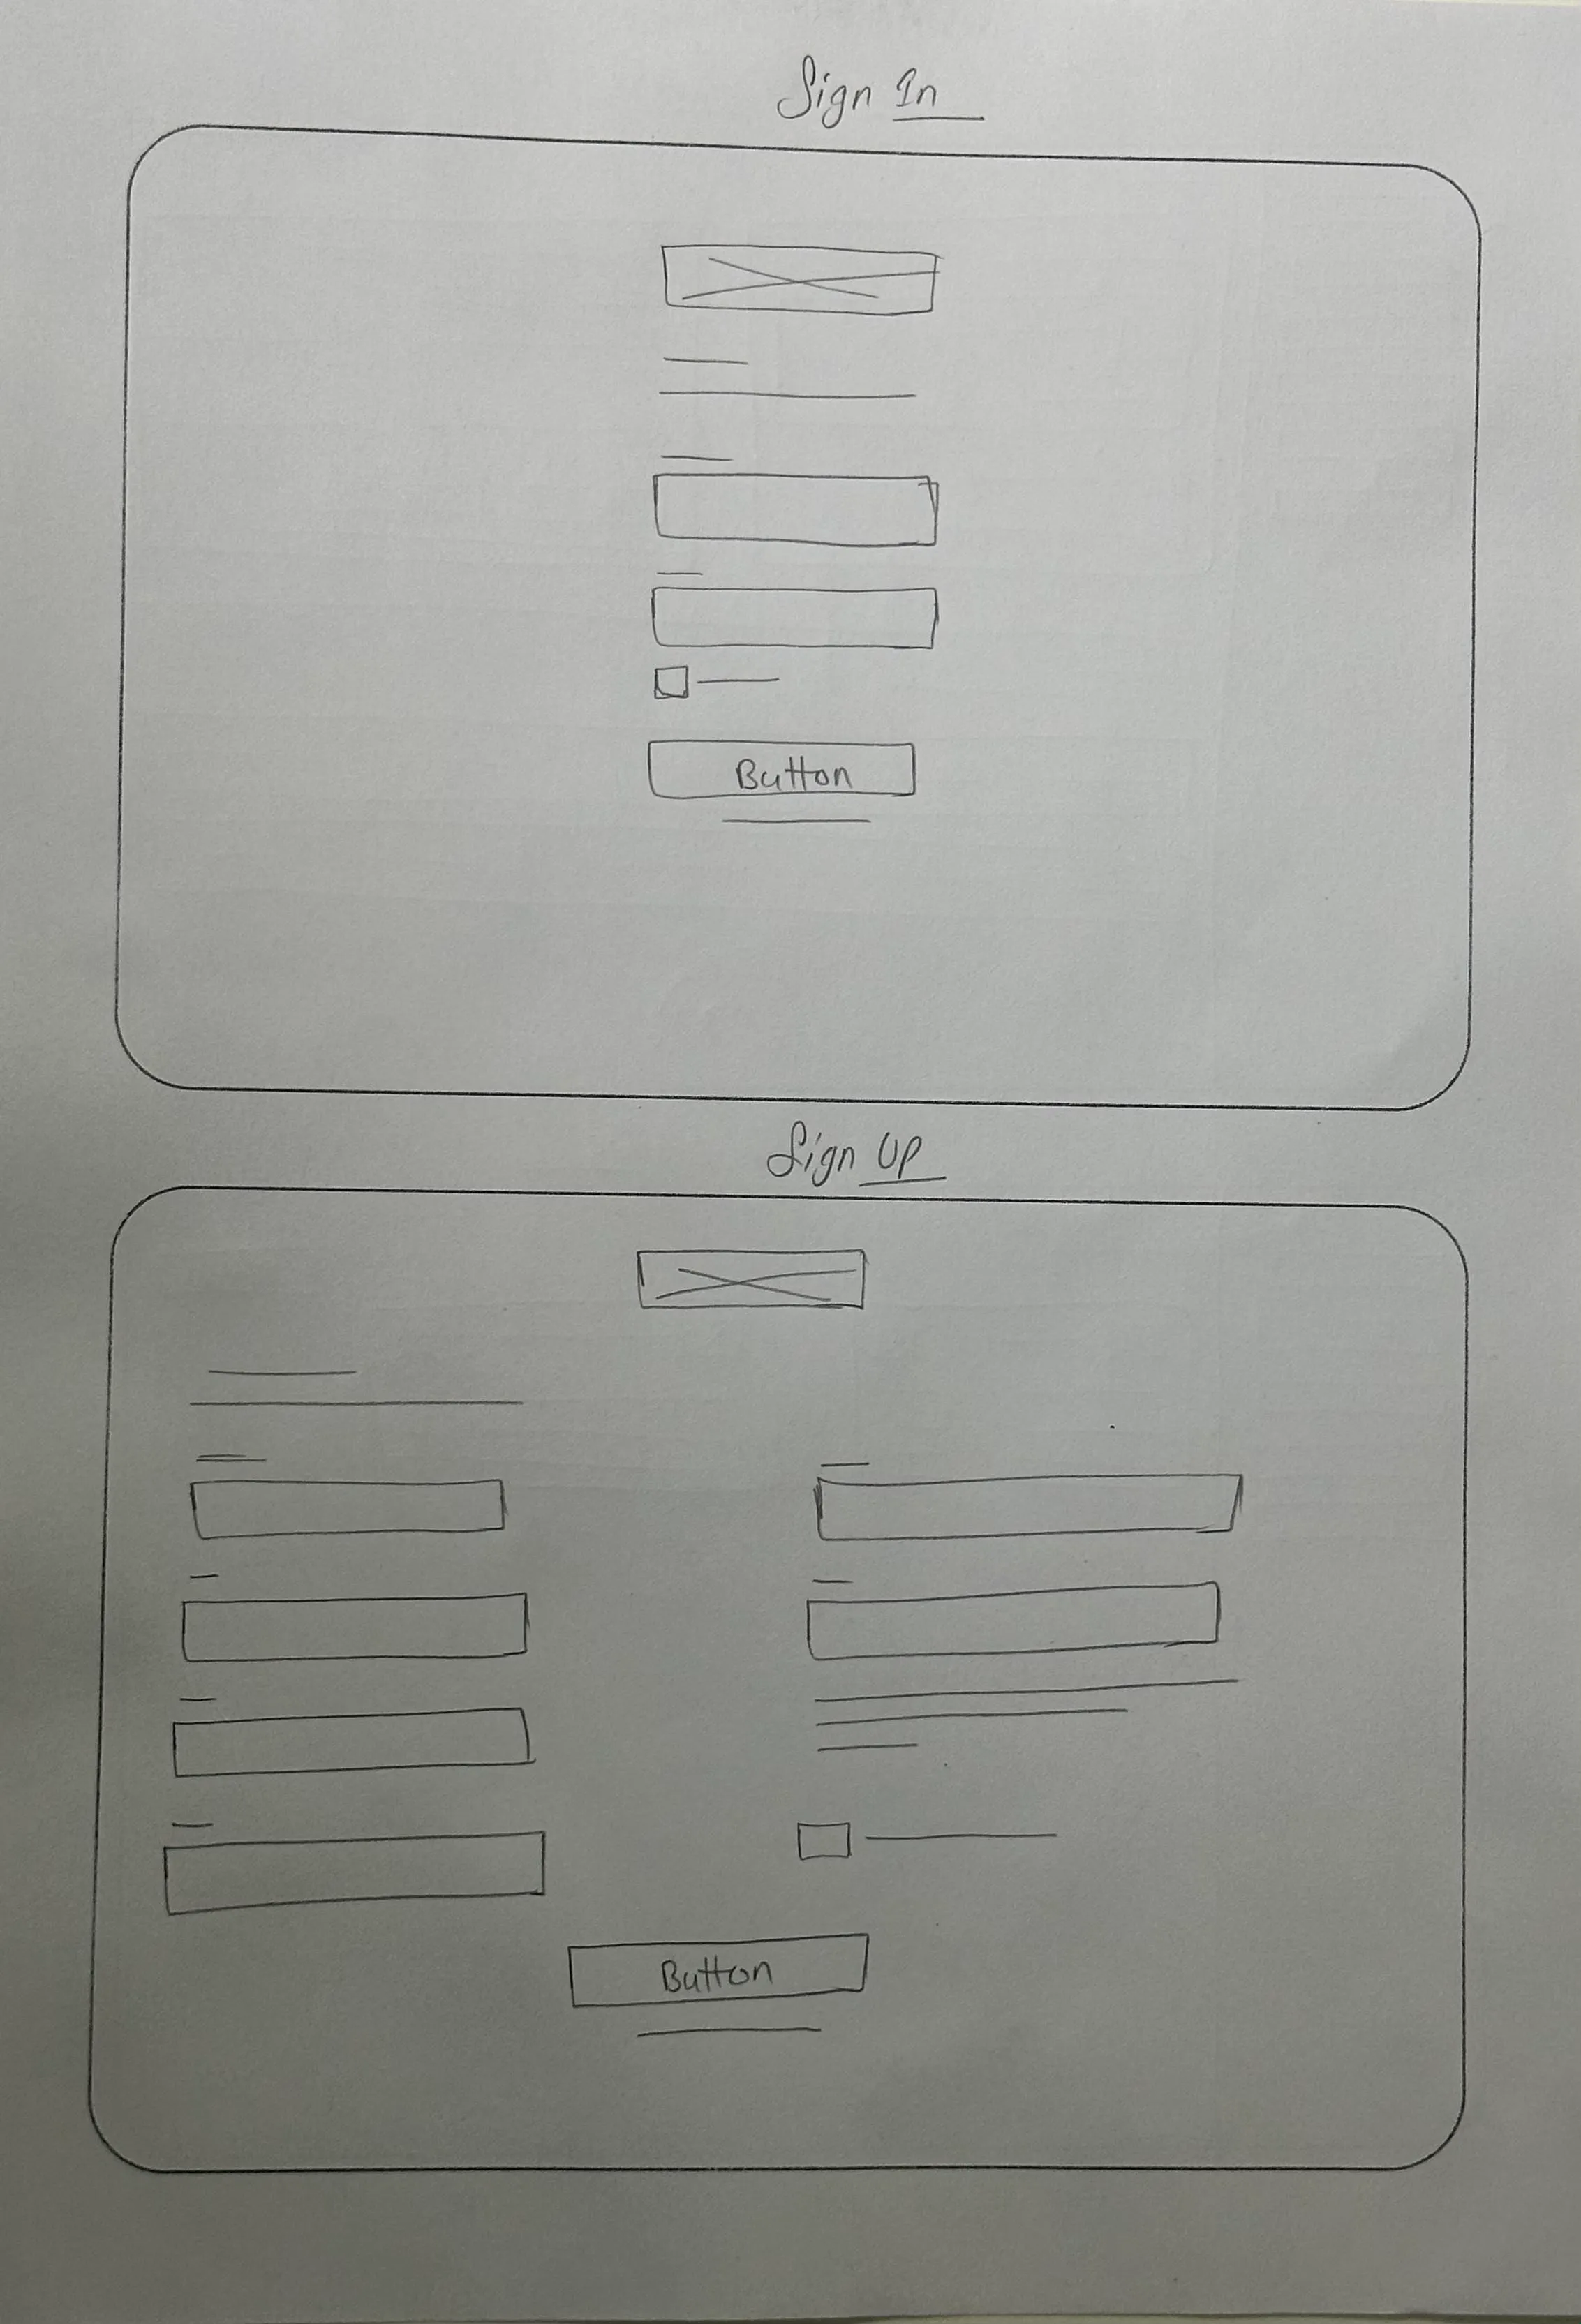 Sign In
Button
Sign UP
Button